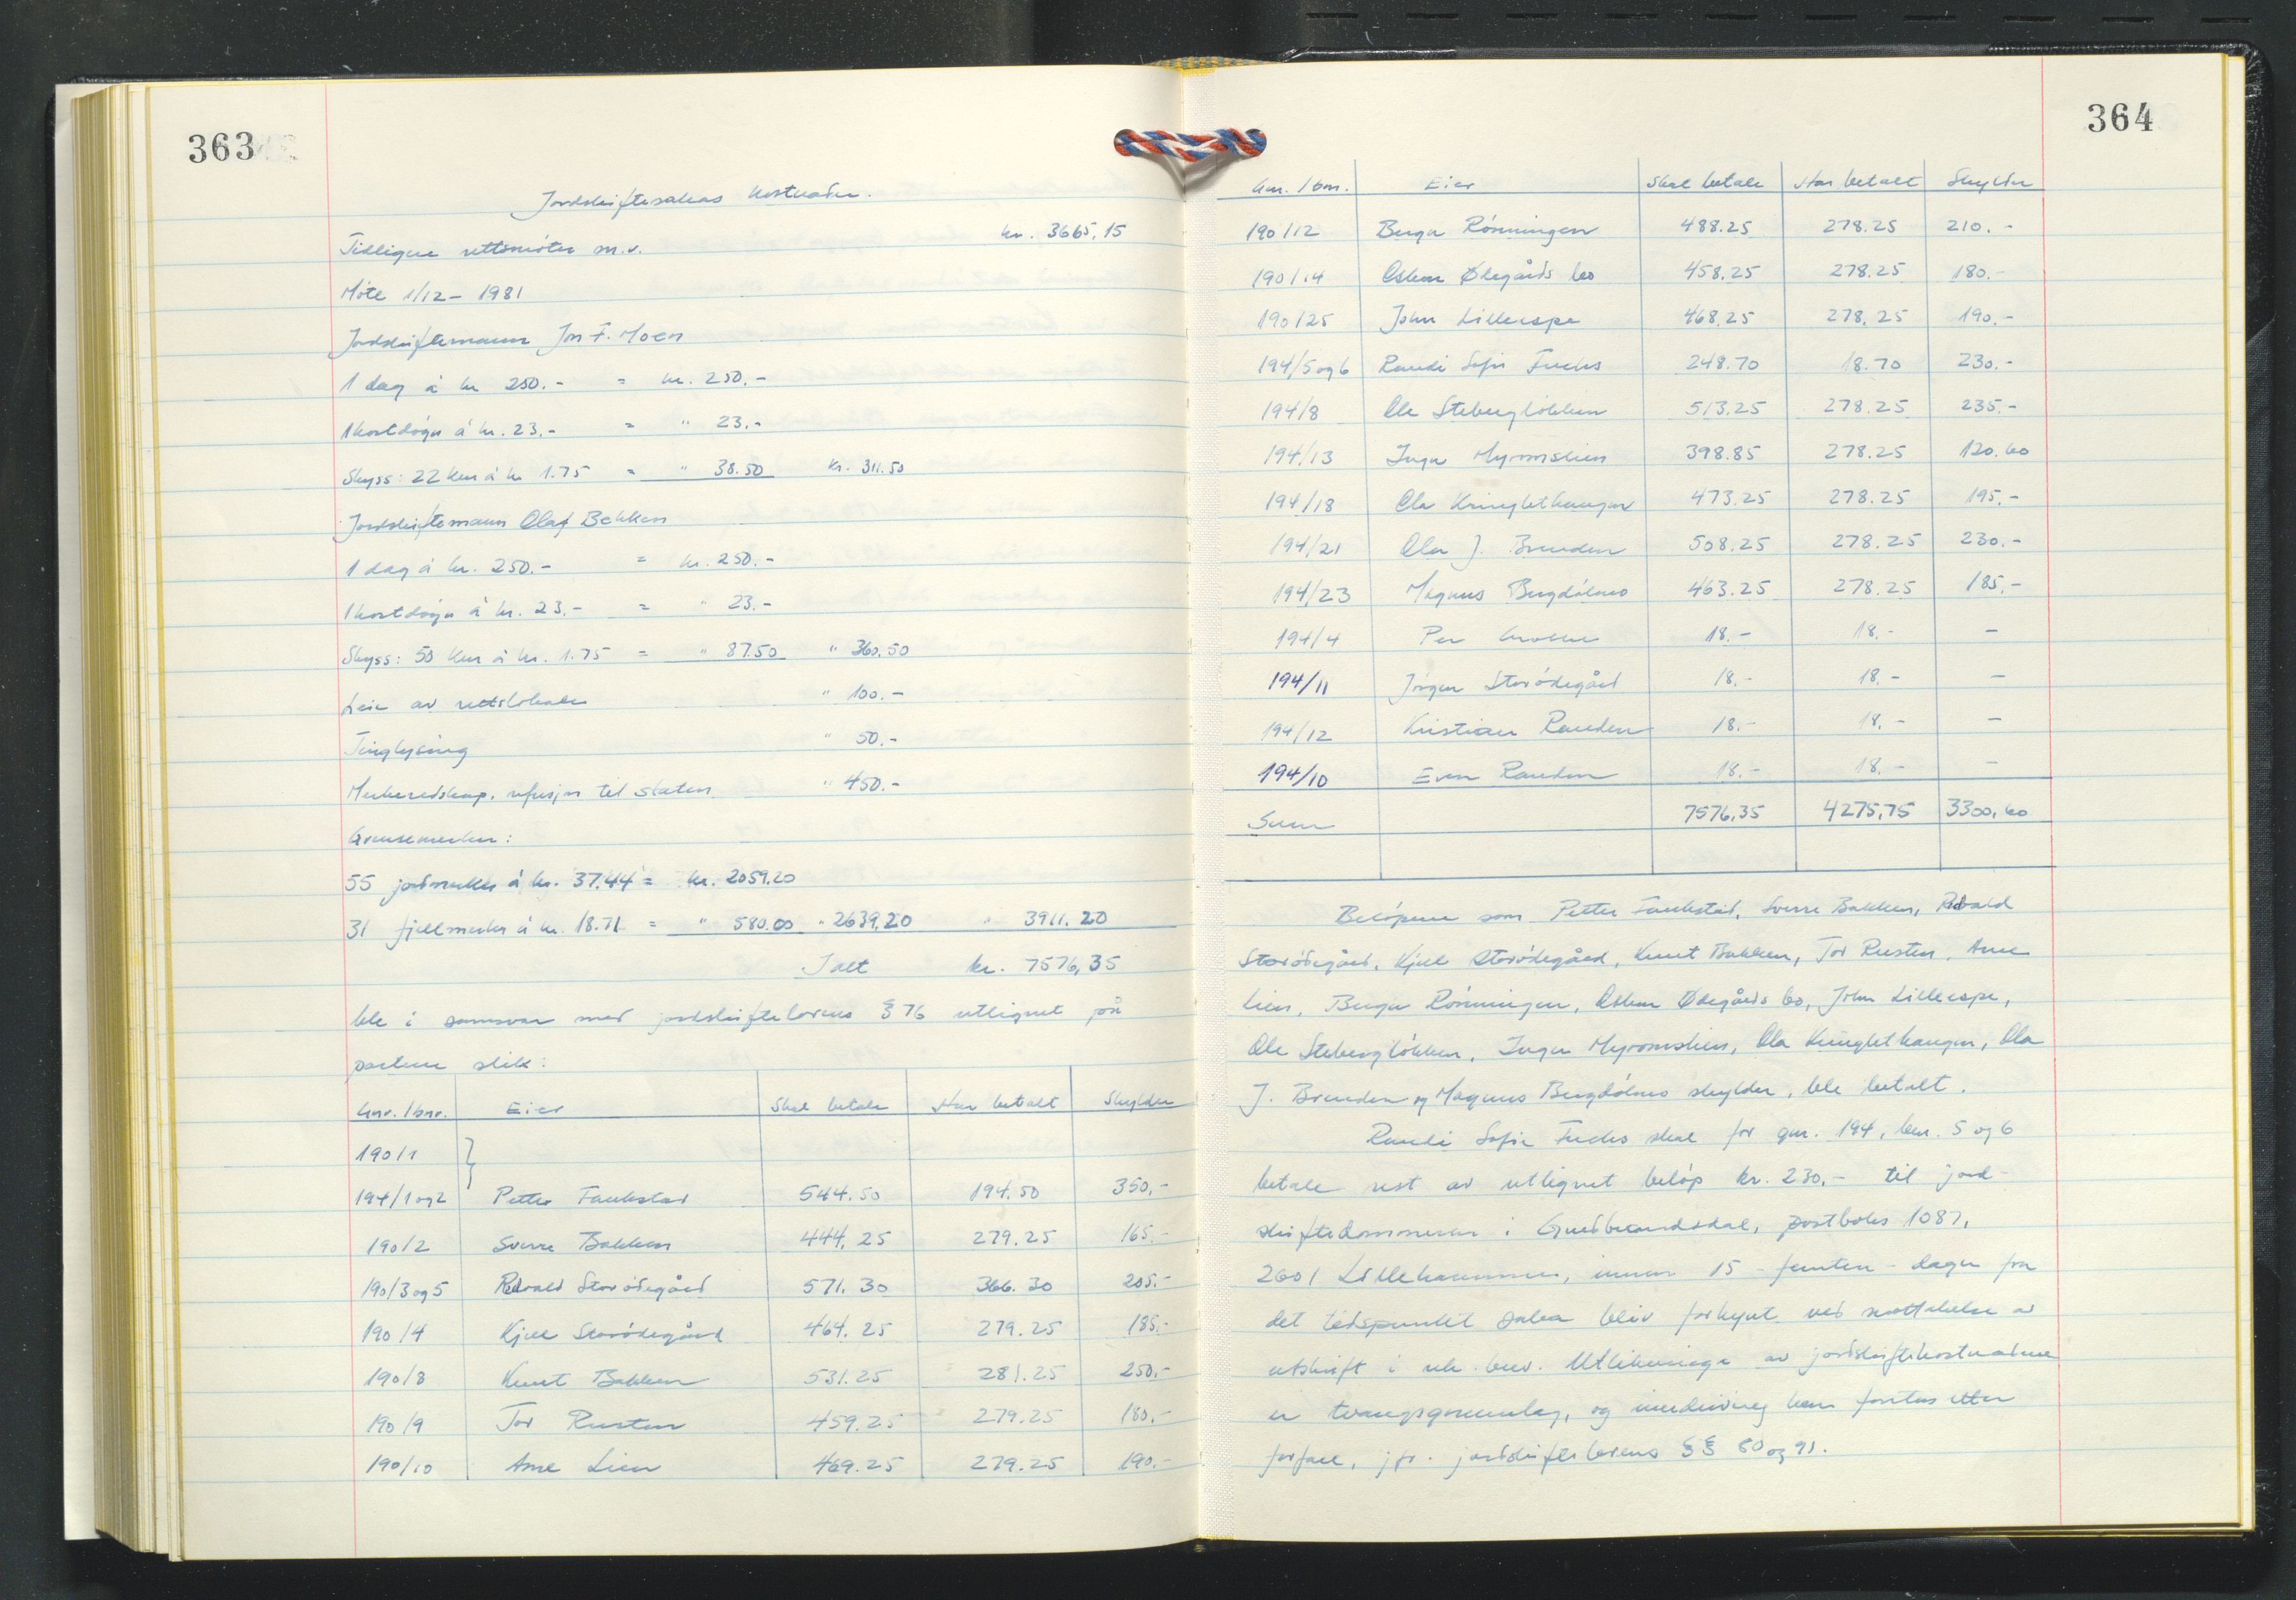 363
Jordskiftesakens kostnader.
Tidligere rettsmøter m.v. kr. 3665,15
Møte 1/12 - 1981
Jordskiftemann Jon F. Moen
1 dag á kr 250.- = kr. 250.-
1 kostdøgn á kr. 23.- = " 23.-
Skyss: 22 km á kr 1.75 = " 38.50 kr. 311.50
Jordskiftemann Olaf Bekken
1 dag á kr. 250.- = kr. 250.-
1 kostdøgn á kr. 23.- = " 23.-
Skyss: 50 km á kr. 1.75 = " 87.50 " 360.50
Leie av rettslokale " 100.-
Tinglysing " 50.-
Merkeredskap, refusjon til staten " 450.-
Grensemerker:
55 jordmerker á kr. 37.44 = kr. 2059.20
31 fjellmerker á kr. 18.71 = " 580.00 " 2639,20 " 3911.20
I alt kr. 7576,35
ble i samsvar med jordskiftelovens § 76 utlignet på
partene slik:
Gnr. / bnr. Eier Skal betale Har betalt Skylder
190/1 }
194/1 og 2 Petter Faukstad 544.50 194.50 350,-
190/2 Sverre Bakken 444.25 279.25 165.-
190/3 og 5 Redvald Storødegård 571.30 366.30 205.-
190/4 Kjell Storødegård 464.25 279.25 185.-
190/8 Knut Bakken 531.25 281.25 250.-
190/9 Tor Rusten 459.25 279.25 180.-
190/10 Arne Lien 469.25 279.25 190.-
364
Gnr. / bnr. Eier Skal betale Har betalt Skylder
190/12 Berger Rønningen 488.25 278.25 210.-
190/14 Oskar Ødegårds bo 458.25 278.25 180.-
190/25 John Lilleespe 468.25 278.25 190.-
194/5 og 6 Randi Sofie Fuchs 248.70 18.70 230.-
194/8 Ole Stebergløkken 513.25 278.25 235.-
194/13 Inger Myromslien 398.85 278.25 120.60
194/18 Ola Kringlethaugen 473.25 278.25 195.-
194/21 Ola J. Brenden 508.25 278.25 230.-
194/23 Magnus Bergdølmo 463.25 278.25 185.-
194/4 Per 18.- 18.- -
194/11 Jørgen Storødegård 18.- 18.- -
194/12 Kristian Randen 18.- 18.- -
194/10 Even Randen 18.- 18.- -
Sum 7576,35 4275,75 3300,60
Beløpene som Petter Faukstad, Sverre Bakken, Redvald
Storødegård, Kjell Storødegård, Knut Bakken, Tor Rusten, Arne
Lien, Berger Rønningen, Oskar Ødegårds bo, John Lilleespe,
Ole Stebergløkken, Inger Myromslien, Ola Kringlethaugen, Ola
J. Brenden og Magnus Bergdølmo skylder, ble betalt.
Randi Sofie Fuchs skal for gnr. 194, bnr. 5 og 6
betale rest av utlignet beløp kr. 230,- til jord-
skiftedommeren i Gudbrandsdal, postboks 1087,
2601 Lillehammer, innen 15 - femten - dager fra
det tidspunktet saka blir forkynt ved mottakelse av
utskrift i rek. brev. Utlikninga av jordskiftekostnadene
er tvangsgrunnlag, og inndriving kan foretas etter
forfall, jfr. jordskiftelovens §§ 80 og 91.